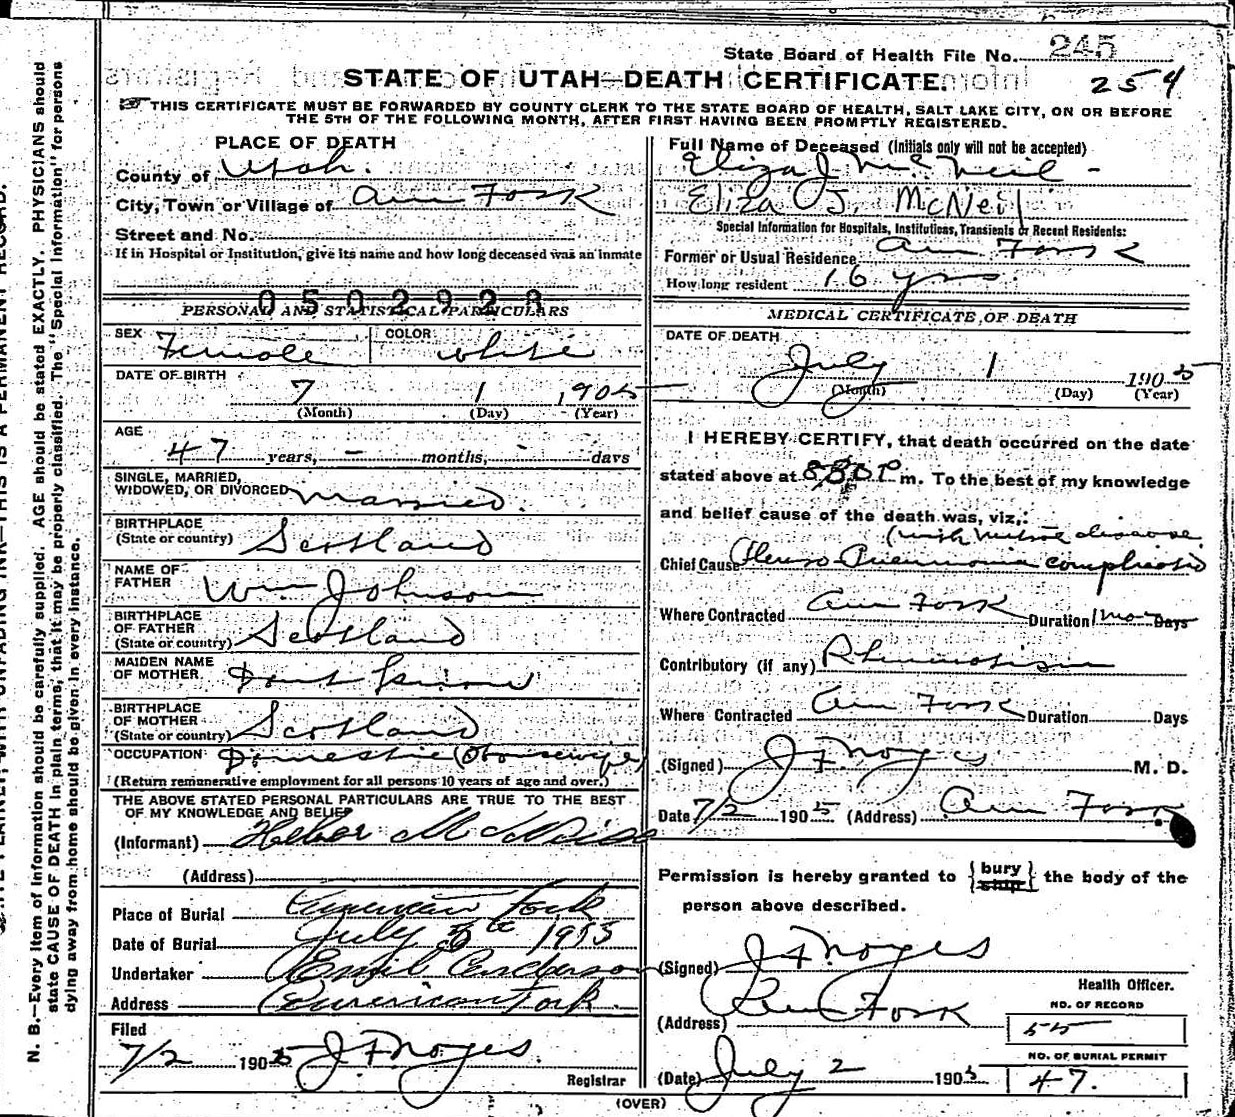 State Board of Health File No. 245
STATE OF UTAH—DEATH CERTIFICATE.
254
THIS CERTIFICATE MUST BE FORWARDED BY COUNTY CLERK TO THE STATE BOARD OF HEALTH, SALT LAKE CITY, ON OR BEFORE
THE 5TH OF THE FOLLOWING MONTH, AFTER FIRST HAVING BEEN PROMPTLY REGISTERED.
PLACE OF DEATH
County of Utah.
City, Town or Village of Am Fork
Street and No.
If in Hospital or Institution, give its name and how long deceased was an inmate
0502928
PERSONAL AND STATISTICAL PARTICULARS
SEX Female COLOR white
DATE OF BIRTH
7 1 1905
(Month) (Day) (Year)
AGE
47 years, – months, - days
SINGLE, MARRIED,
WIDOWED, OR DIVORCED married.
BIRTHPLACE
(State or country) Scotland
NAME OF
FATHER Wm Johnson
BIRTHPLACE
OF FATHER
(State or country) Scotland
MAIDEN NAME
OF MOTHER Dont know
BIRTHPLACE
OF MOTHER
(State or country) Scotland
OCCUPATION Domestic (Housewife)
(Return remunerative employment for all persons 10 years of age and over.)
THE ABOVE STATED PERSONAL PARTICULARS ARE TRUE TO THE BEST
OF MY KNOWLEDGE AND BELIEF
(Informant) Heber
(Address)
Place of Burial American Fork
Date of Burial July
Undertaker Emil Anderson
Address American Fork.
Filed
7/2 1905 J F Noyes
Registrar
Full Name of Deceased (Initials only will not be accepted)
Eliza J McNeil -
Eliza J. McNeil
Special Information for Hospitals, Institutions, Transients or Recent Residents:
Former or Usual Residence Am Fork
How long resident 16 yrs.
MEDICAL CERTIFICATE OF DEATH
DATE OF DEATH
July 1 1905
(Month) (Day) (Year)
I HEREBY CERTIFY, that death occurred on the date
stated above at P m. To the best of my knowledge
and belief cause of the death was, viz,:
(with mitral disease
Chief Cause Pleuro Pneumonia complicated
Where Contracted Am Fork Duration 1 mo Days
Contributory (if any) Rheumatism
Where Contracted Am Fork Duration Days
(Signed) J F Noyes M. D.
Date 7/2 1905. (Address) Am Fork.
Permission is hereby granted to {bury ship} the body of the
person above described.
(Signed) J F Noyes
Health Officer.
(Address) Am Fork
NO. OF RECORD
55
NO. OF BURIAL PERMIT
47.
(Date) July 2 1905.
(OVER)
N. B.—Every item of information should be carefully supplied. AGE should be stated EXACTLY. PHYSICIANS should
state CAUSE OF DEATH in plain terms, that it may be properly classified. The "Special Information" for persons
dying away from home should be given in every instance.